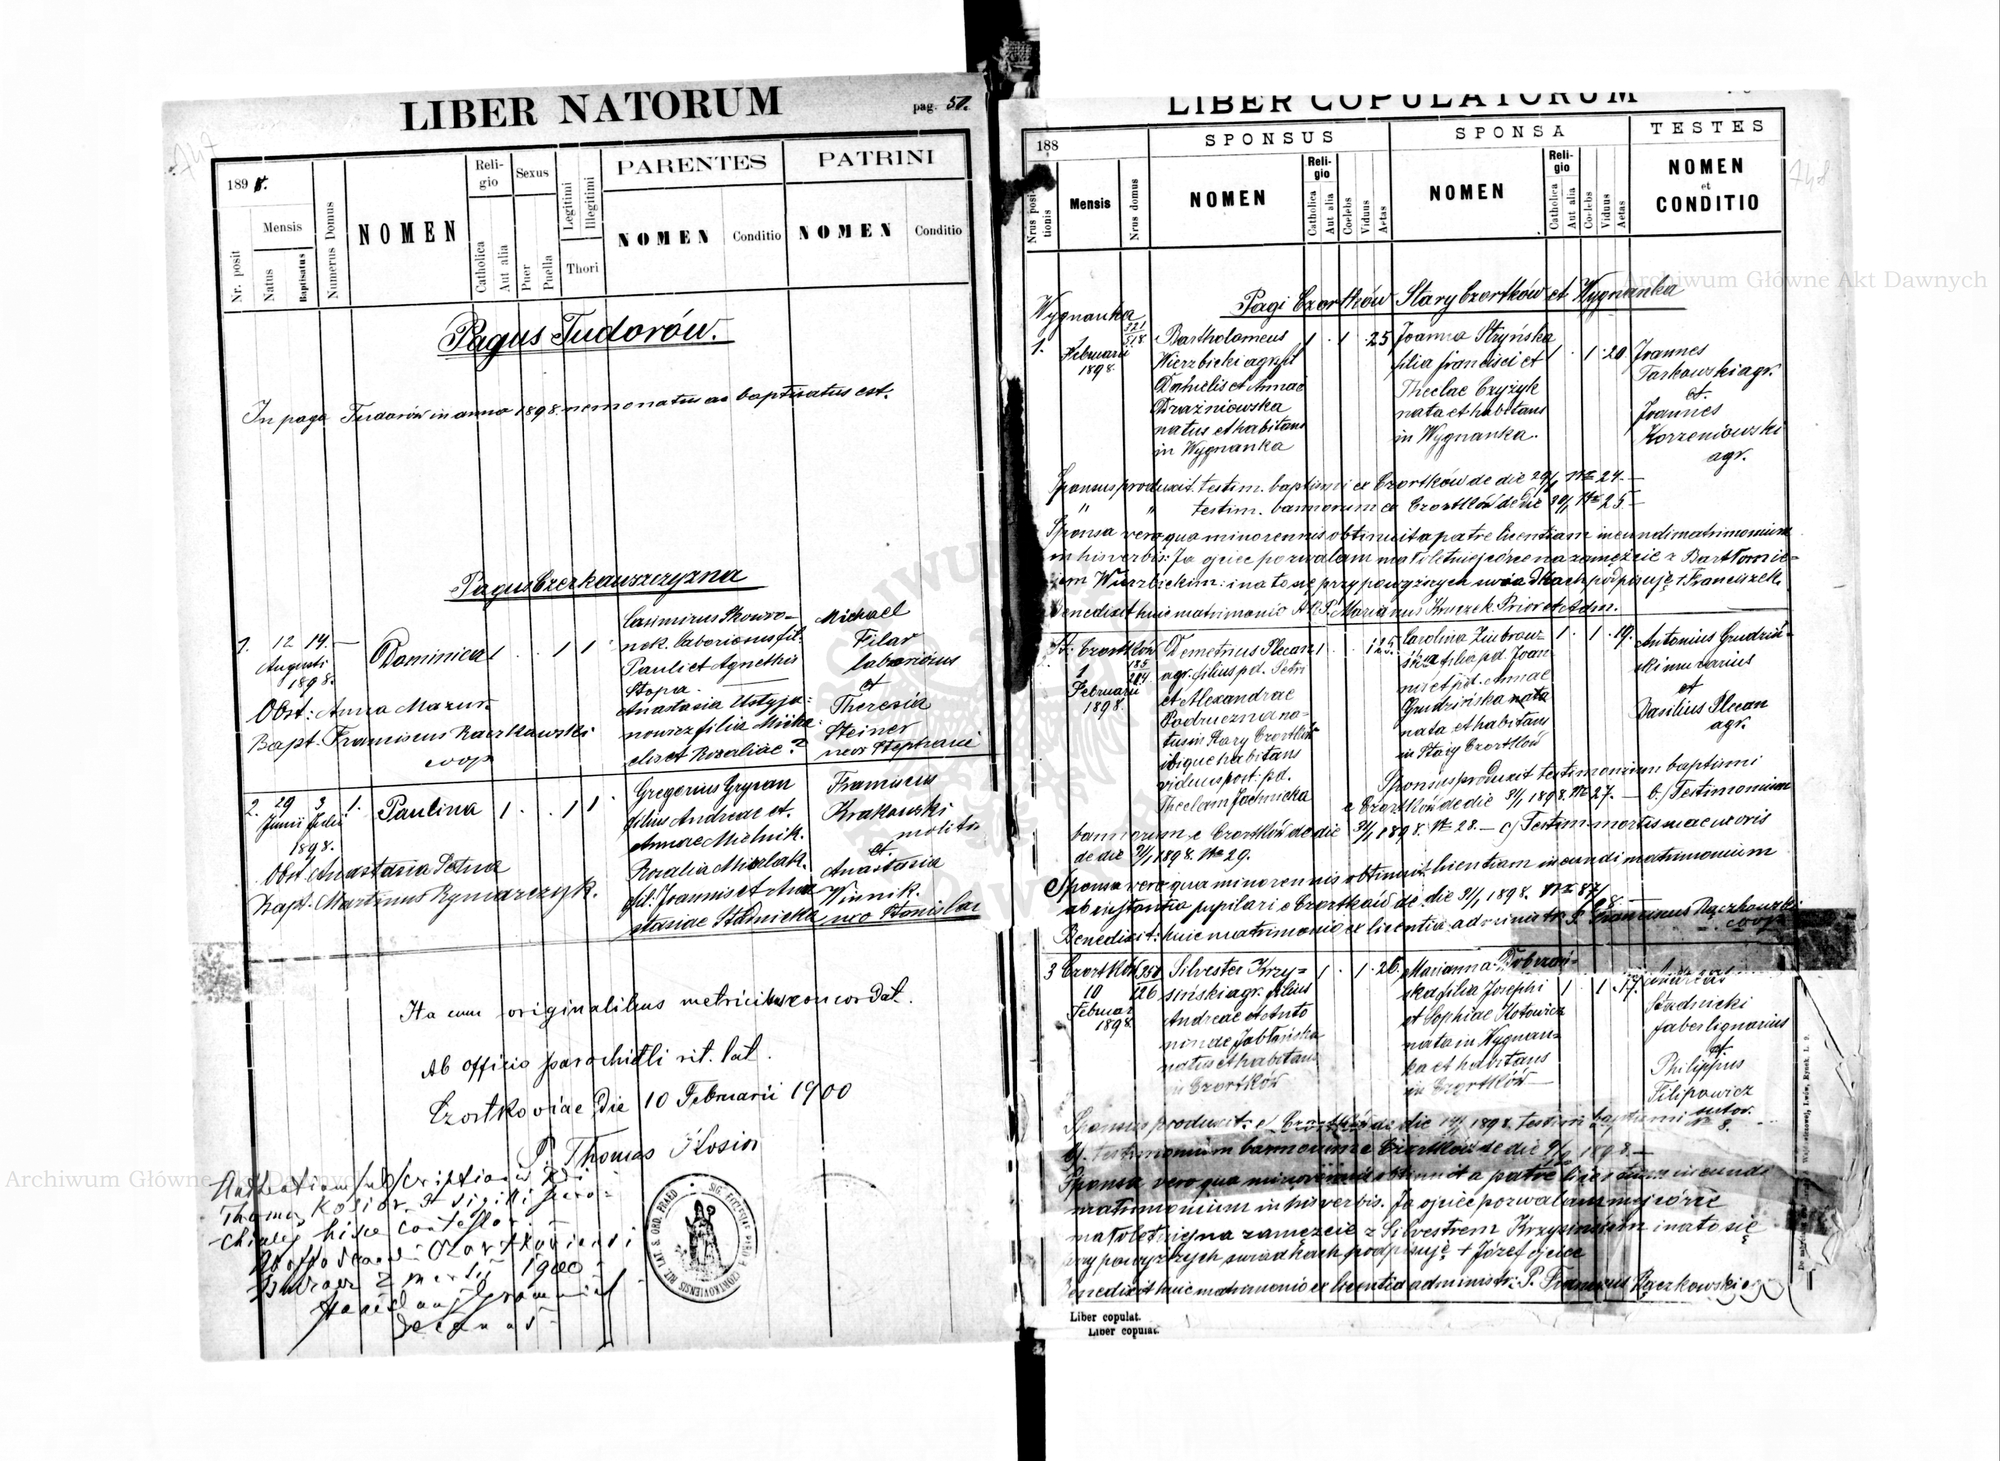 LIBER NATORUM
pag. 50.
189 8.
Nr. posit
Mensis
Natus
Baptisatus
Numerus Domus
NOMEN
Religio
Catholica
Aut alia
Sexus
Puer
Puella
Legitimi
Illegitimi
Thori
PARENTES
NOMEN
Conditio
PATRINI
NOMEN
Conditio
Pagus Tudorów.
In pago Tudorów in anno 1898 nemo natus ac baptisatus est.
Pagus Czerkawszczyzna
1. 12 14. —
Augusti
1898.
Dominica 1 . . 1 1
Casimirus Skowro-
nek laboriosus fil.
Pauli et Agnethis
Stopa.
Anastasia Ustyja-
nowicz filia Micha-
elis et Rosaliae?
Michael
Filar
laboriosus
et
Theresia
Steiner
uxor Stephani
Obst: Anna Mazur
Bapt. Franciscus Raczkowski
coop.
2. 29 3 1.
Junii Julii
1898.
Paulina 1 . . 1 1
Gregorius Grycan
filius Andreae et
Annae Mielnik.
Rosalia Michalak
fil. Joannis et Ana
stasiae Stadnicka
Franciscus
Krakowski
molitor
et
Anastasia
Winnik.
uxo Stanislai
Obst. Anastasia Petna
Bapt. Martinus Ryniarczyk.
Ita cum originalibus metricis concordat.
Ab officio parochiali rit. lat.
Czortkoviae die 10 Februarii 1900
P. Thomas Kosior
Thomas Kosior et sigilli paro-
chialis hisce contestor.
1900
Decanus
SIG. ECCLESIAE
CORTKOVIENSIS RIT. LAT. S. ORD. PRAED
LIBER COPULATORUM
188
Nrus positionis
Mensis
Nrus domus
SPONSUS
NOMEN
Religio
Catholica
Aut alia
Coelebs
Viduus
Aetas
SPONSA
NOMEN
Religio
Catholica
Aut alia
Coelebs
Viduus
Aetas
TESTES
NOMEN
et
CONDITIO
Pagi Czortków Stary Czortków et Wygnanka
Wygnanka
1.
Februarii
1898.
Bartholomeus
Wierzbicki agr. fil
Danielis et Annae
Drazniowska
natus et habitans
in Wygnanka
1 . 1 . 25
Joanna Stryńska
filia Francisci et
Theclae Czyżyk
nata et habitans
in Wygnanka.
1 . 1 . 20
Joannes
Tarkowski agr.
et
Joannes
Korzeniowski
agr.
Sponsus produxit testim. baptismi ex Czortków de die 29/1 Nr 24. —
" " testim. bannorum ex Czortków de die 30/1 Nr 25. —
Sponsa vero qua minorennis obtinuit a patre licentiam ineundi matrimonium
in his verbis: Ja ojciec pozwalam małoletniej córce na zamęźcie z Bartłomie-
jem Wierzbickim: i na to się przy powyższych świadkach podpisuję + Franciszek.
Benedixit huic matrimonio A. R. P. Marianus Kruczek Prior et Adm.
St. Czortków
1
Februarii
1898.
Demetrius Plecan
agr. filius pd. Petri
et Alexandrae
Podruczna na-
tus in Stary Czortków
ibique habitans
viduus post. pd.
Theclam Jachnicka
Carolina Ziubrow-
ska filia pd. Joan-
nis et pd. Annae
Grudzińska nata
nata et habitans
in Stary Czortków
1 . 1 . 19.
Antonius Grudziń-
ski murarius
et
Basilius Plecan
agr.
Sponsus produxit testimonium baptismi
e Czortków de die 31/1 1898. Nr 27. — b.) Testimonium
bannorum e Czortków de die 31/1 1898. Nr 28. — c) Testim. mortis suae uxoris
de die 31/1 1898. Nr 29.
Sponsa vero qua minorennis obtinuit licentiam ineundi matrimonium
ab instantia pupilari e Czortków de die 31/1 1898. Nr 87/8 —
Benedixit huic matrimonio ex licentia administr. P. Franciscus Rączkowski
coop.
3 Czortków
10
Februar
1898
Silvester Krzy-
siński agr. filius
Andreae et Anto
ninae Jabłońska
natus et habitans
in Czortków
1 . 1 . 26.
Marianna Dobrzań-
ska filia Josephi
et Sophiae Kotowicz
nata in Wygnan-
ka et habitans
in Czortków
1 . 1 . 17.
Andreas
Stadnicki
faber lignarius
et
Philippus
Filipowicz
sutor.
Sponsus produxit e Czortków de die 10/2 1898. testim baptismi Nr 8.
b). testimonium bannorum e Czortków de die 9/2 1898. —
Sponsa vero qua minorennis obtinuit a patre licentiam ineundi
matrimonium in his verbis. Ja ojciec pozwalam mej córce
małoletniej na zamęzcie z Silvestrem Krzysińskim i na to się
przy powyższych świadkach podpisuję + Józef ojciec
Benedixit huic matrimonio ex licentia administr. P. Franciscus Rączkowski
Liber copulat.
Liber copulat.
Archiwum Główne Akt Dawnych
Archiwum Główne Akt Dawnych